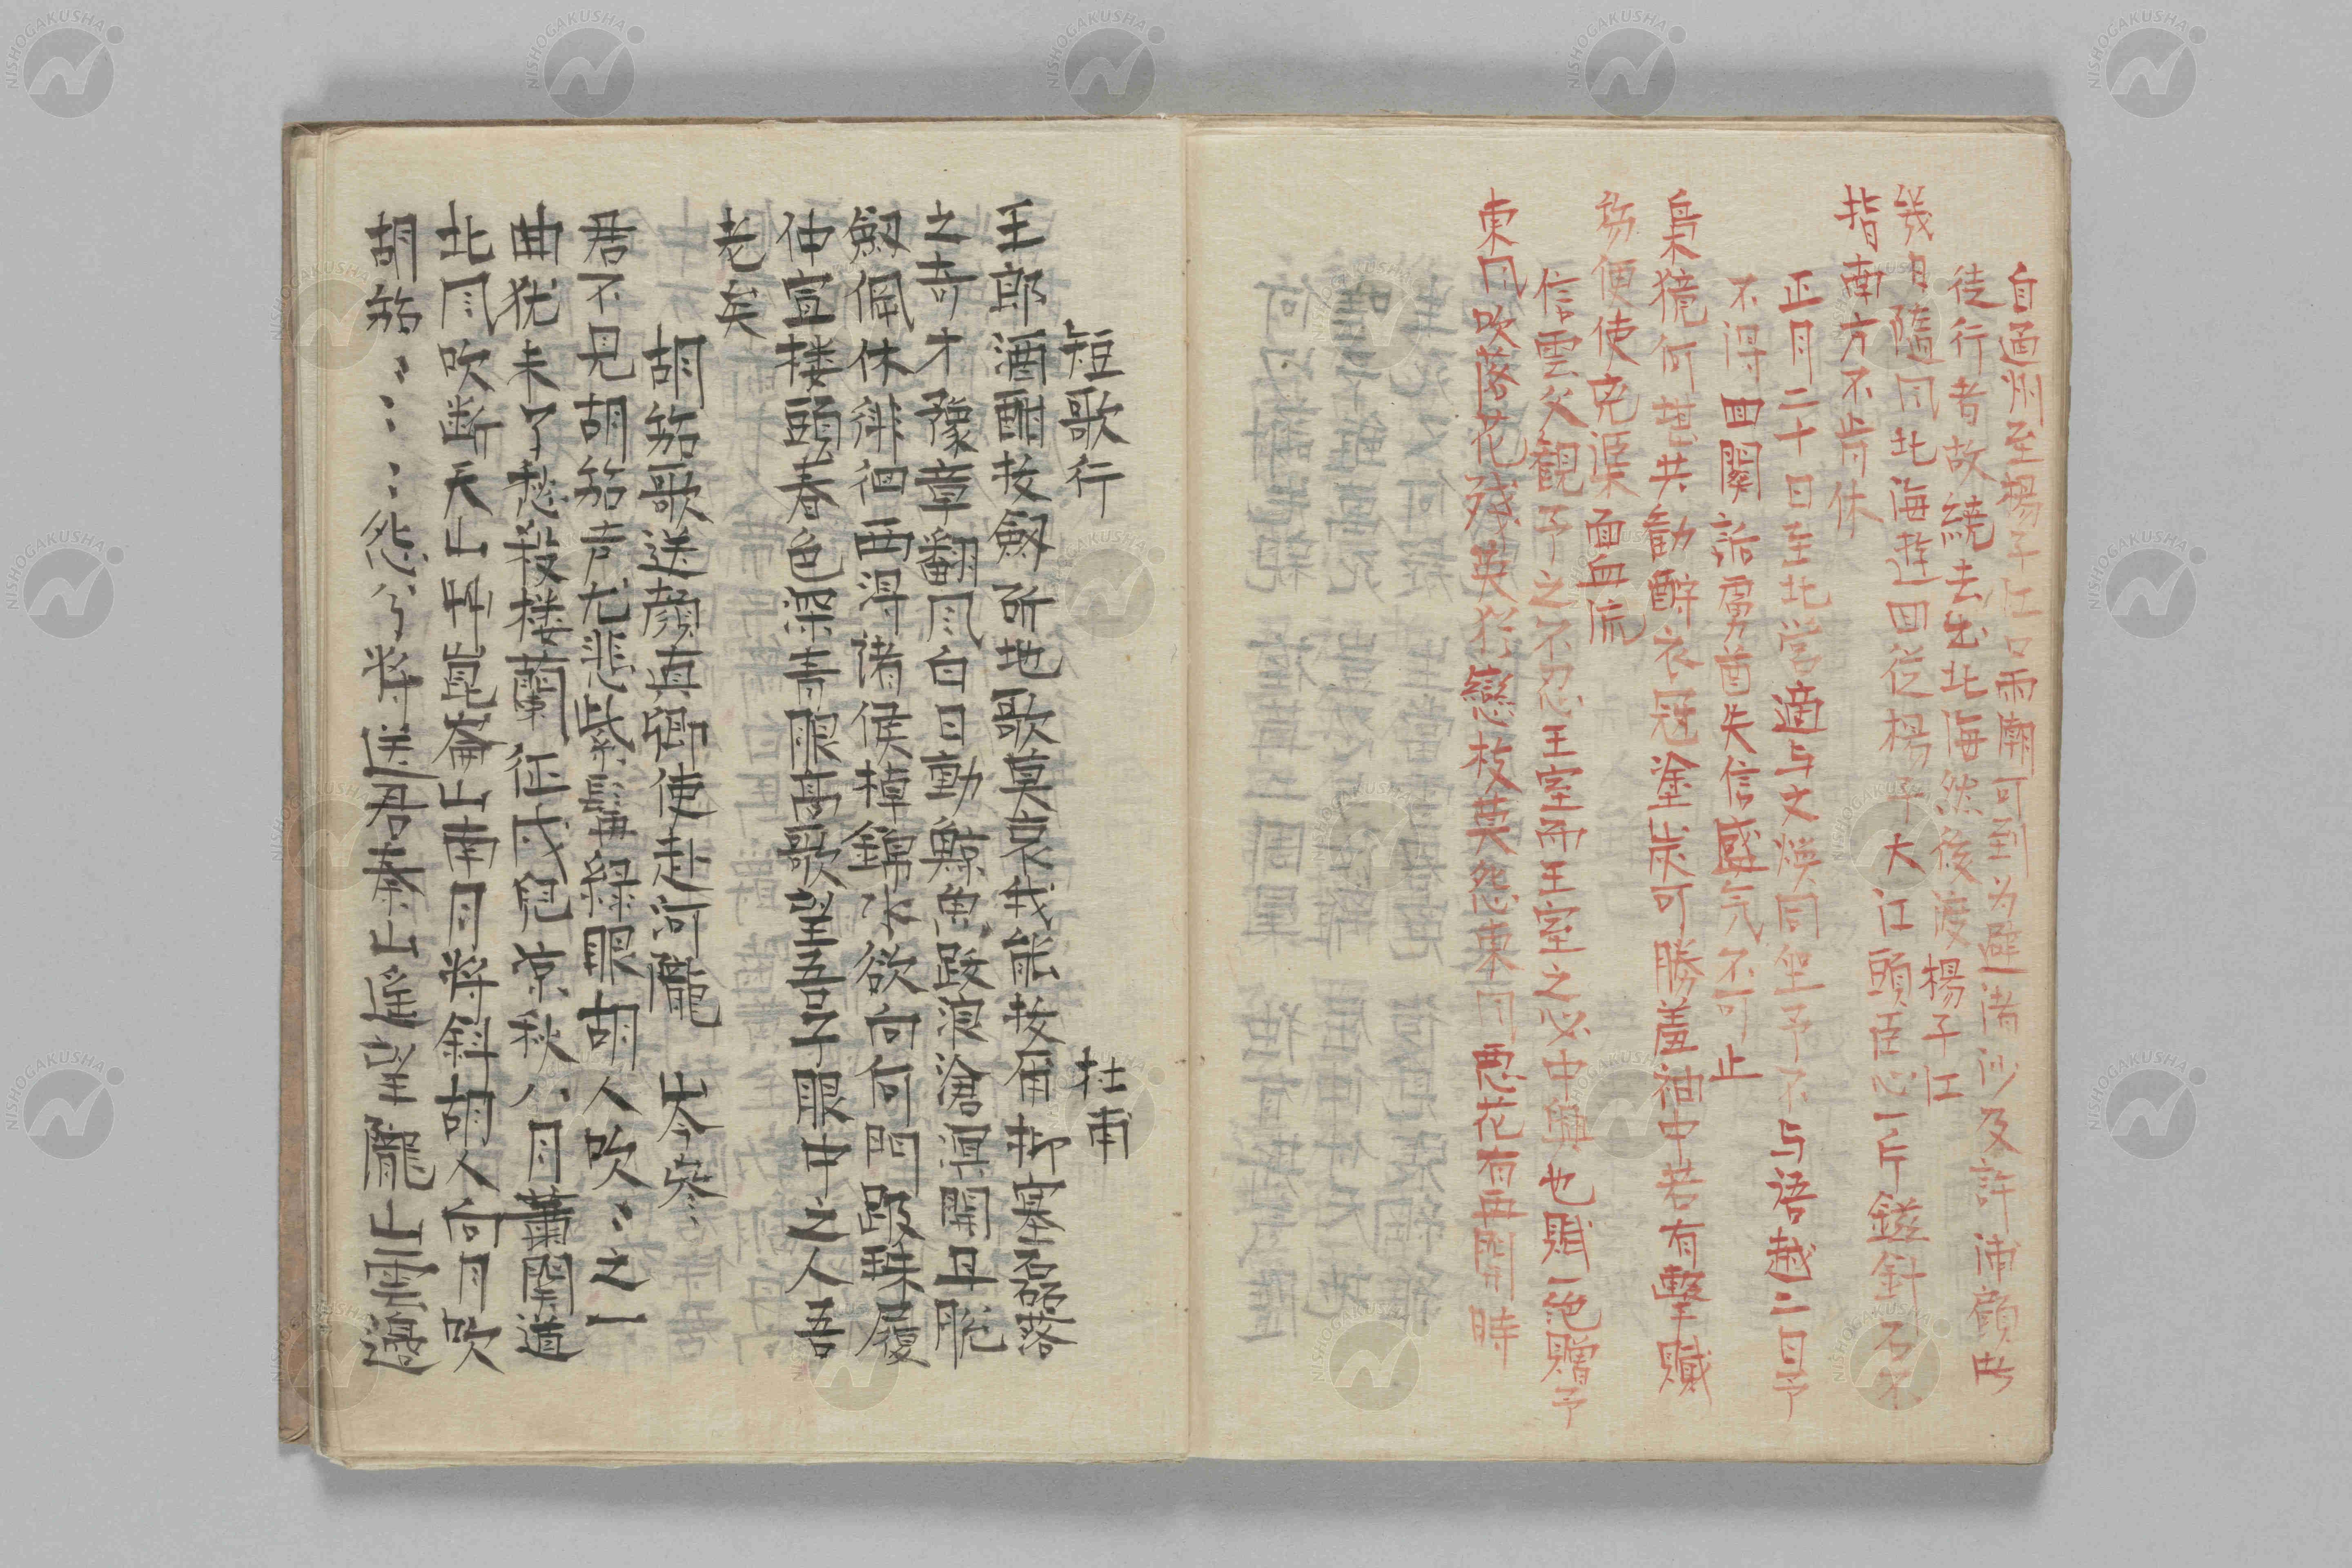 自通州至楊子江口両潮可到为避渚沙及許浦顧此
徒行者故繞去出北海然後渡楊子江
幾日隨風北海遊回従楊子大江頭臣心一片鎡針石不
指南方不肯休
正月二十日至北営適与文煥同坐予不与语越二日予
不得回闕詬虜酋失信盛气不可止
梟獍何堪共勧酬衣冠塗炭可勝羞袖中若有擊賊
笏便使兇渠面血流
信雲父観予之不忍王室而王室之必中興也賦一絶贈予
東風吹落花残英猶戀枝莫怨東風悪花有再開時
短歌行
杜甫
王郎酒酣抜劔斫地歌莫哀我能抜爾抑塞磊落
之奇才豫章翻風白日動鯨魚跋浪滄溟開且脱
劔佩休徘徊西得諸侯棹錦水欲向何門趿珠履
仲宣楼頭春色深青眼高歌望吾子眼中之人吾
老矣
胡笳歌送顔真卿使赴河隴 岑參
君不見胡笳声尤悲紫髯緑眼胡人吹〻之一
曲犹未了愁殺楼蘭征戍兒凉秋八月蕭関道
北風吹断天山艸崑崙山南月将斜胡人向月吹
胡笳〻〻〻怨兮将送君秦山遥望隴山雲邊